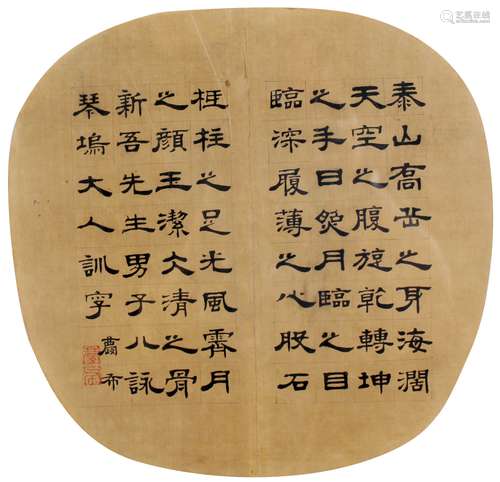 泰山高岳之身海濶
天空之腹旋乾轉坤
之手日炤月臨之目
臨深履薄之心般石
柱之足光風霽月
之顏玉潔仌清之骨
新吾先生男子八詠
琴塢大人訓字
艺狐在线